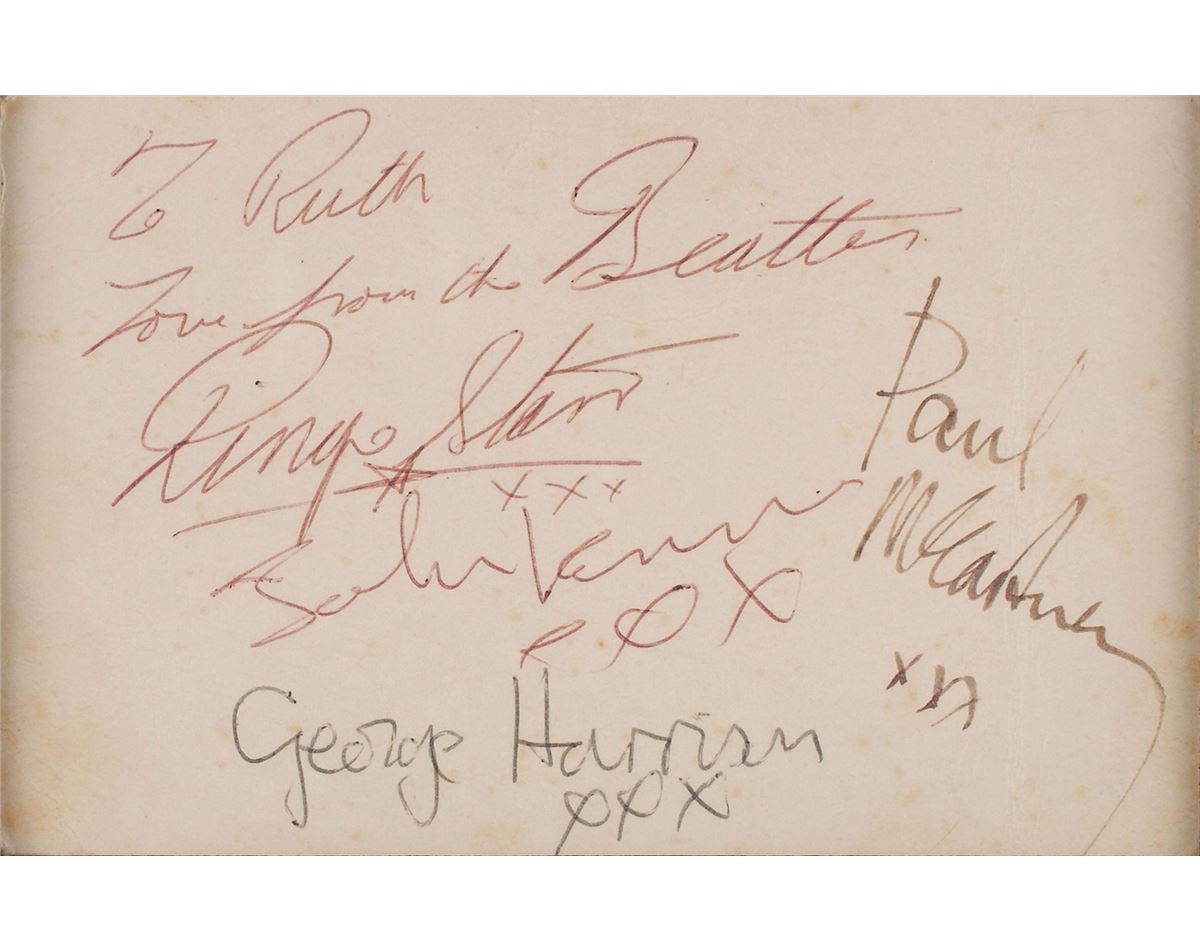 To Ruth
Love from the Beatles
Ringo Starr
xxx
John Lennon
xxx
Paul
McCartney
xxx
George Harrison
xxx